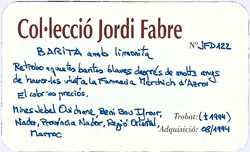 Col·lecció Jordi Fabre
Nº JFD122
BARITA amb limonita
Retrobo aquestes barites blaves després de molts anys
de haver-les vist a la Farmacia Merchich d'Azrou
El cobro és preciós.
Mines Jebel Ouichane, Beni Bou Ifrour,
Nador, Província Nador, Regió Oriental,
Marroc
Trobat: (± 1994)
Adquisició: 08/1994